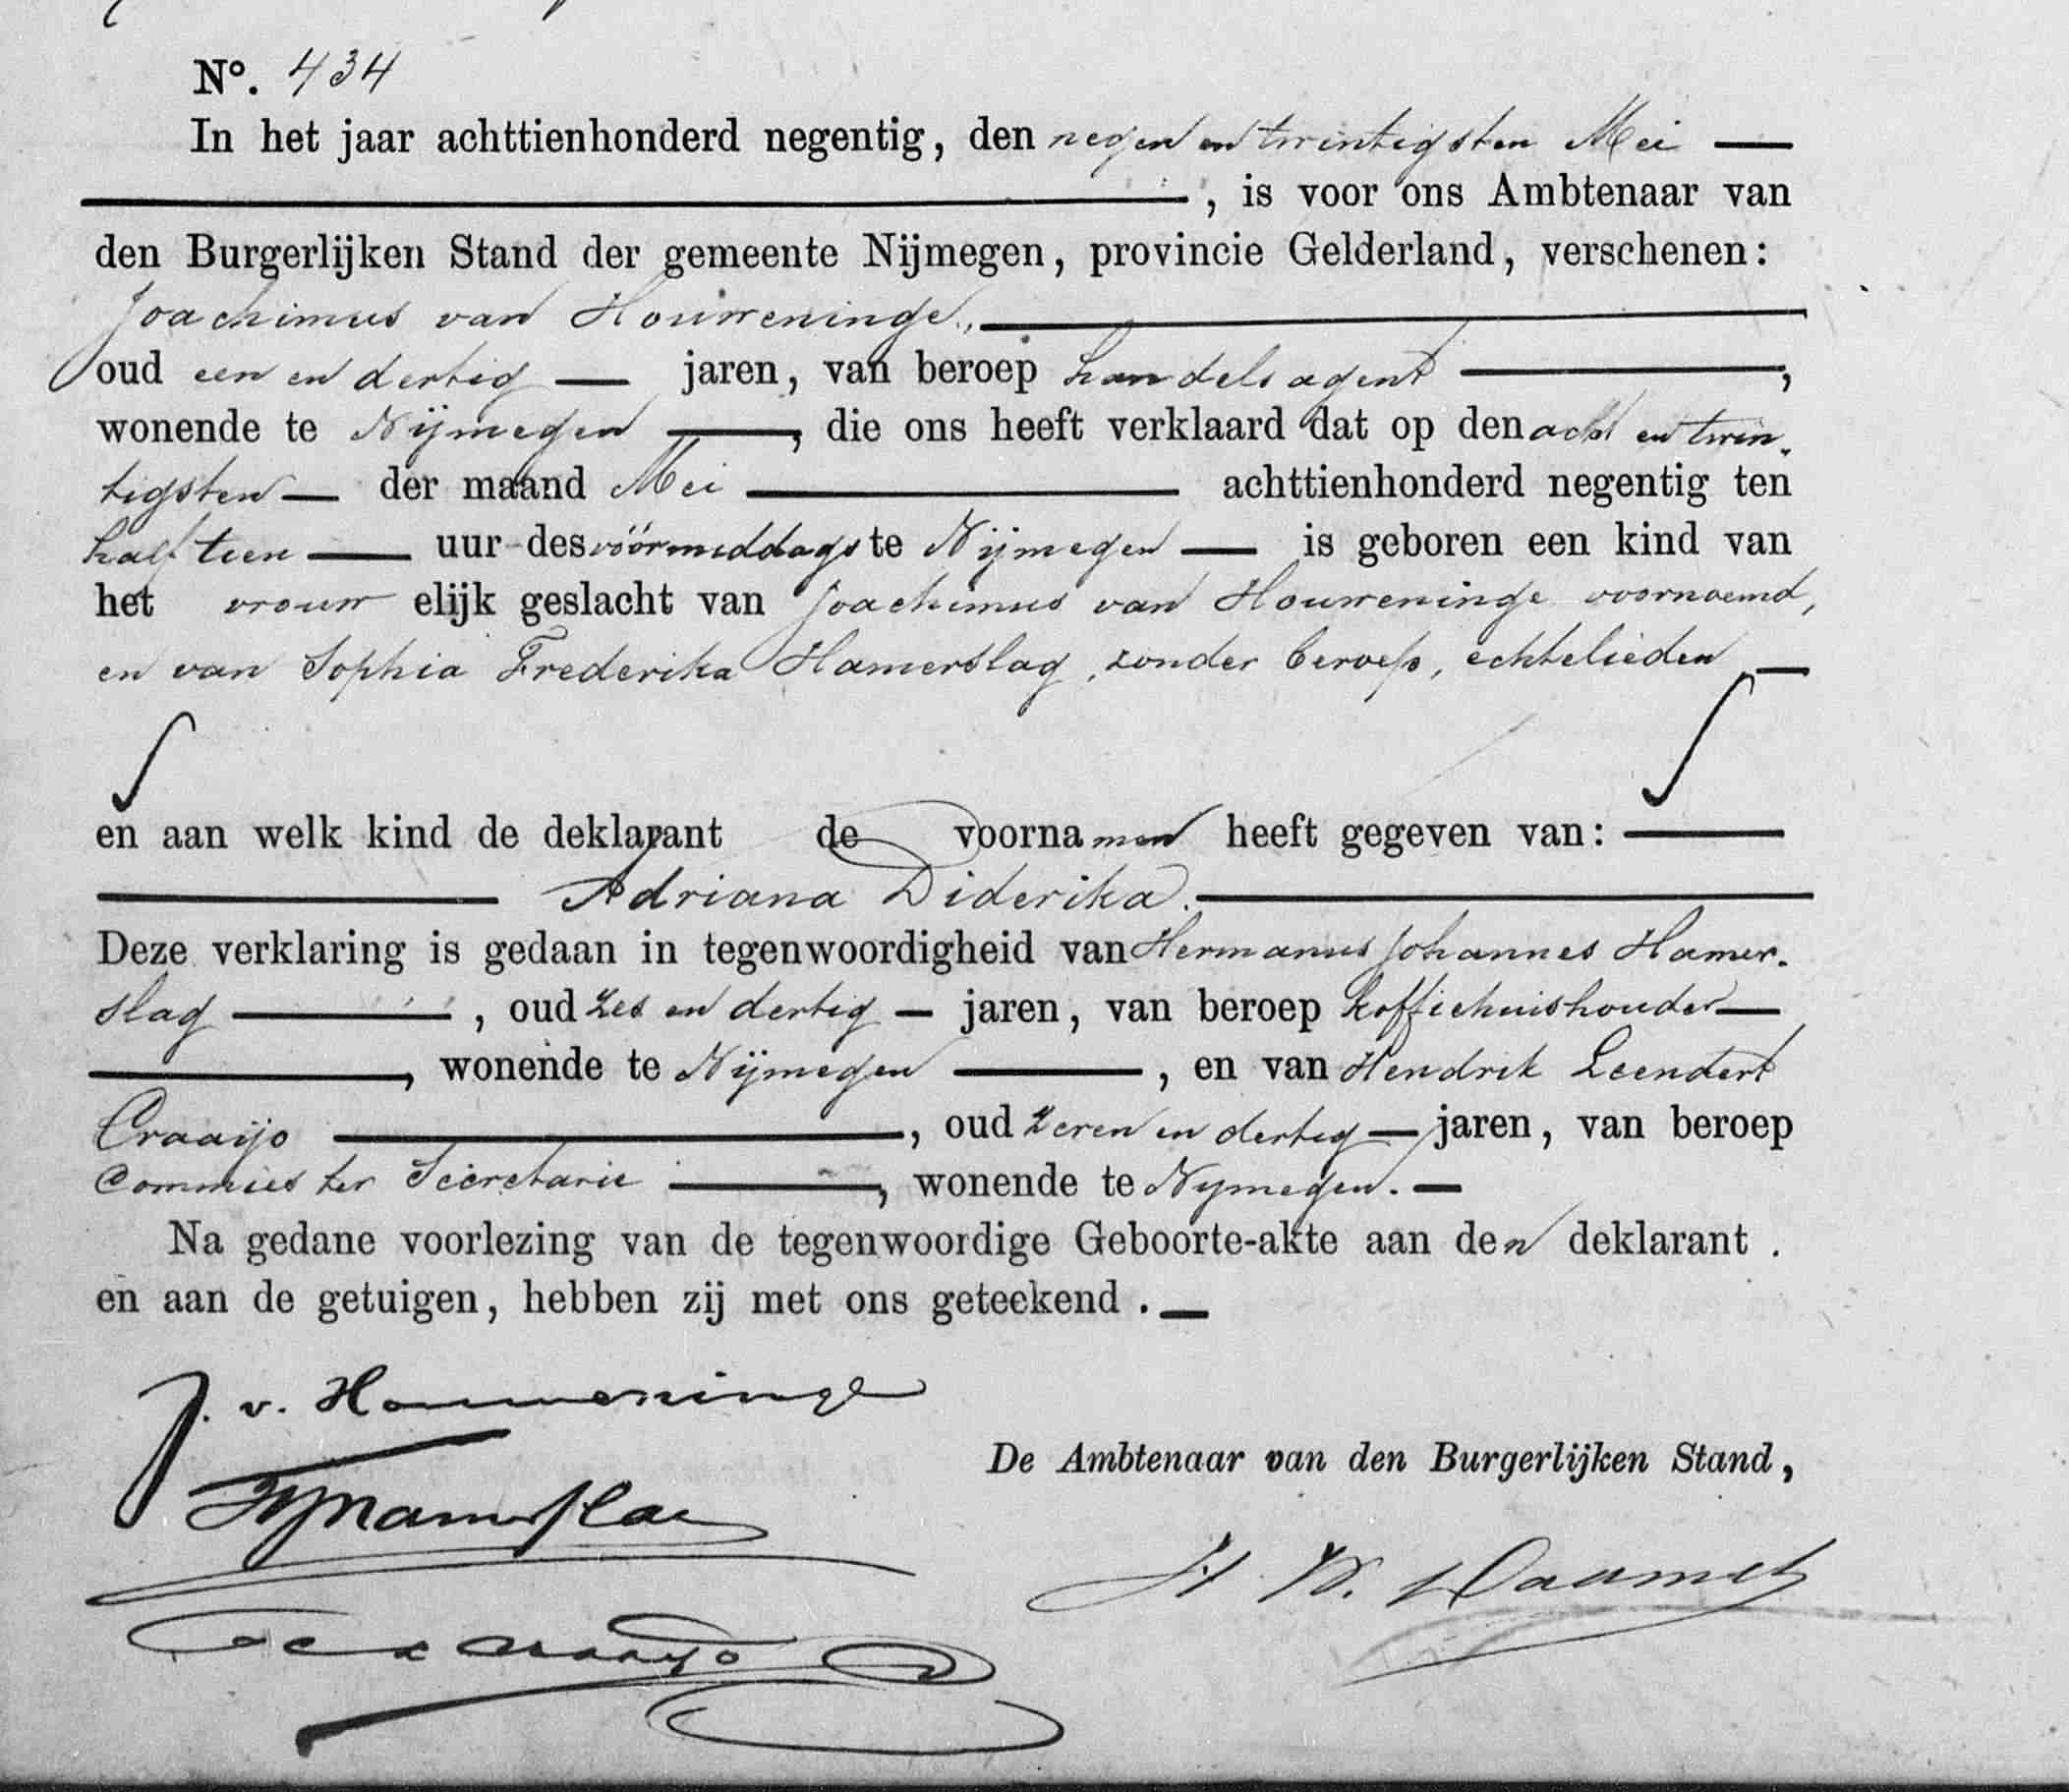 No. 434
In het jaar achttienhonderd negentig, den negen en twintigsten Mei
, is voor ons Ambtenaar van
den Burgerlijken Stand der gemeente Nijmegen, provincie Gelderland, verschenen:
Joachimus van Houweninge,
oud een en dertig jaren, van beroep handelsagent,
wonende te Nijmegen, die ons heeft verklaard dat op den acht en twin-
tigsten der maand Mei achttienhonderd negentig ten
half tien uur des vóórmiddags te Nijmegen is geboren een kind van
het vrouwelijk geslacht van Joachimus van Houweninge voornoemd,
en van Sophia Frederika Hamerslag, zonder beroep, echtelieden
en aan welk kind de deklarant de voornamen heeft gegeven van:
Adriana Diderika.
Deze verklaring is gedaan in tegenwoordigheid van Hermanus Johannes Hamer-
slag, oud zes en dertig jaren, van beroep koffiehuishouder
, wonende te Nijmegen, en van Hendrik Leendert
Craaijo, oud zeven en dertig jaren, van beroep
Commies ter Secretarie, wonende te Nijmegen.
Na gedane voorlezing van de tegenwoordige Geboorte-akte aan den deklarant.
en aan de getuigen, hebben zij met ons geteekend.
J. v. Houweninge
De Ambtenaar van den Burgerlijken Stand,
HJHamerslag